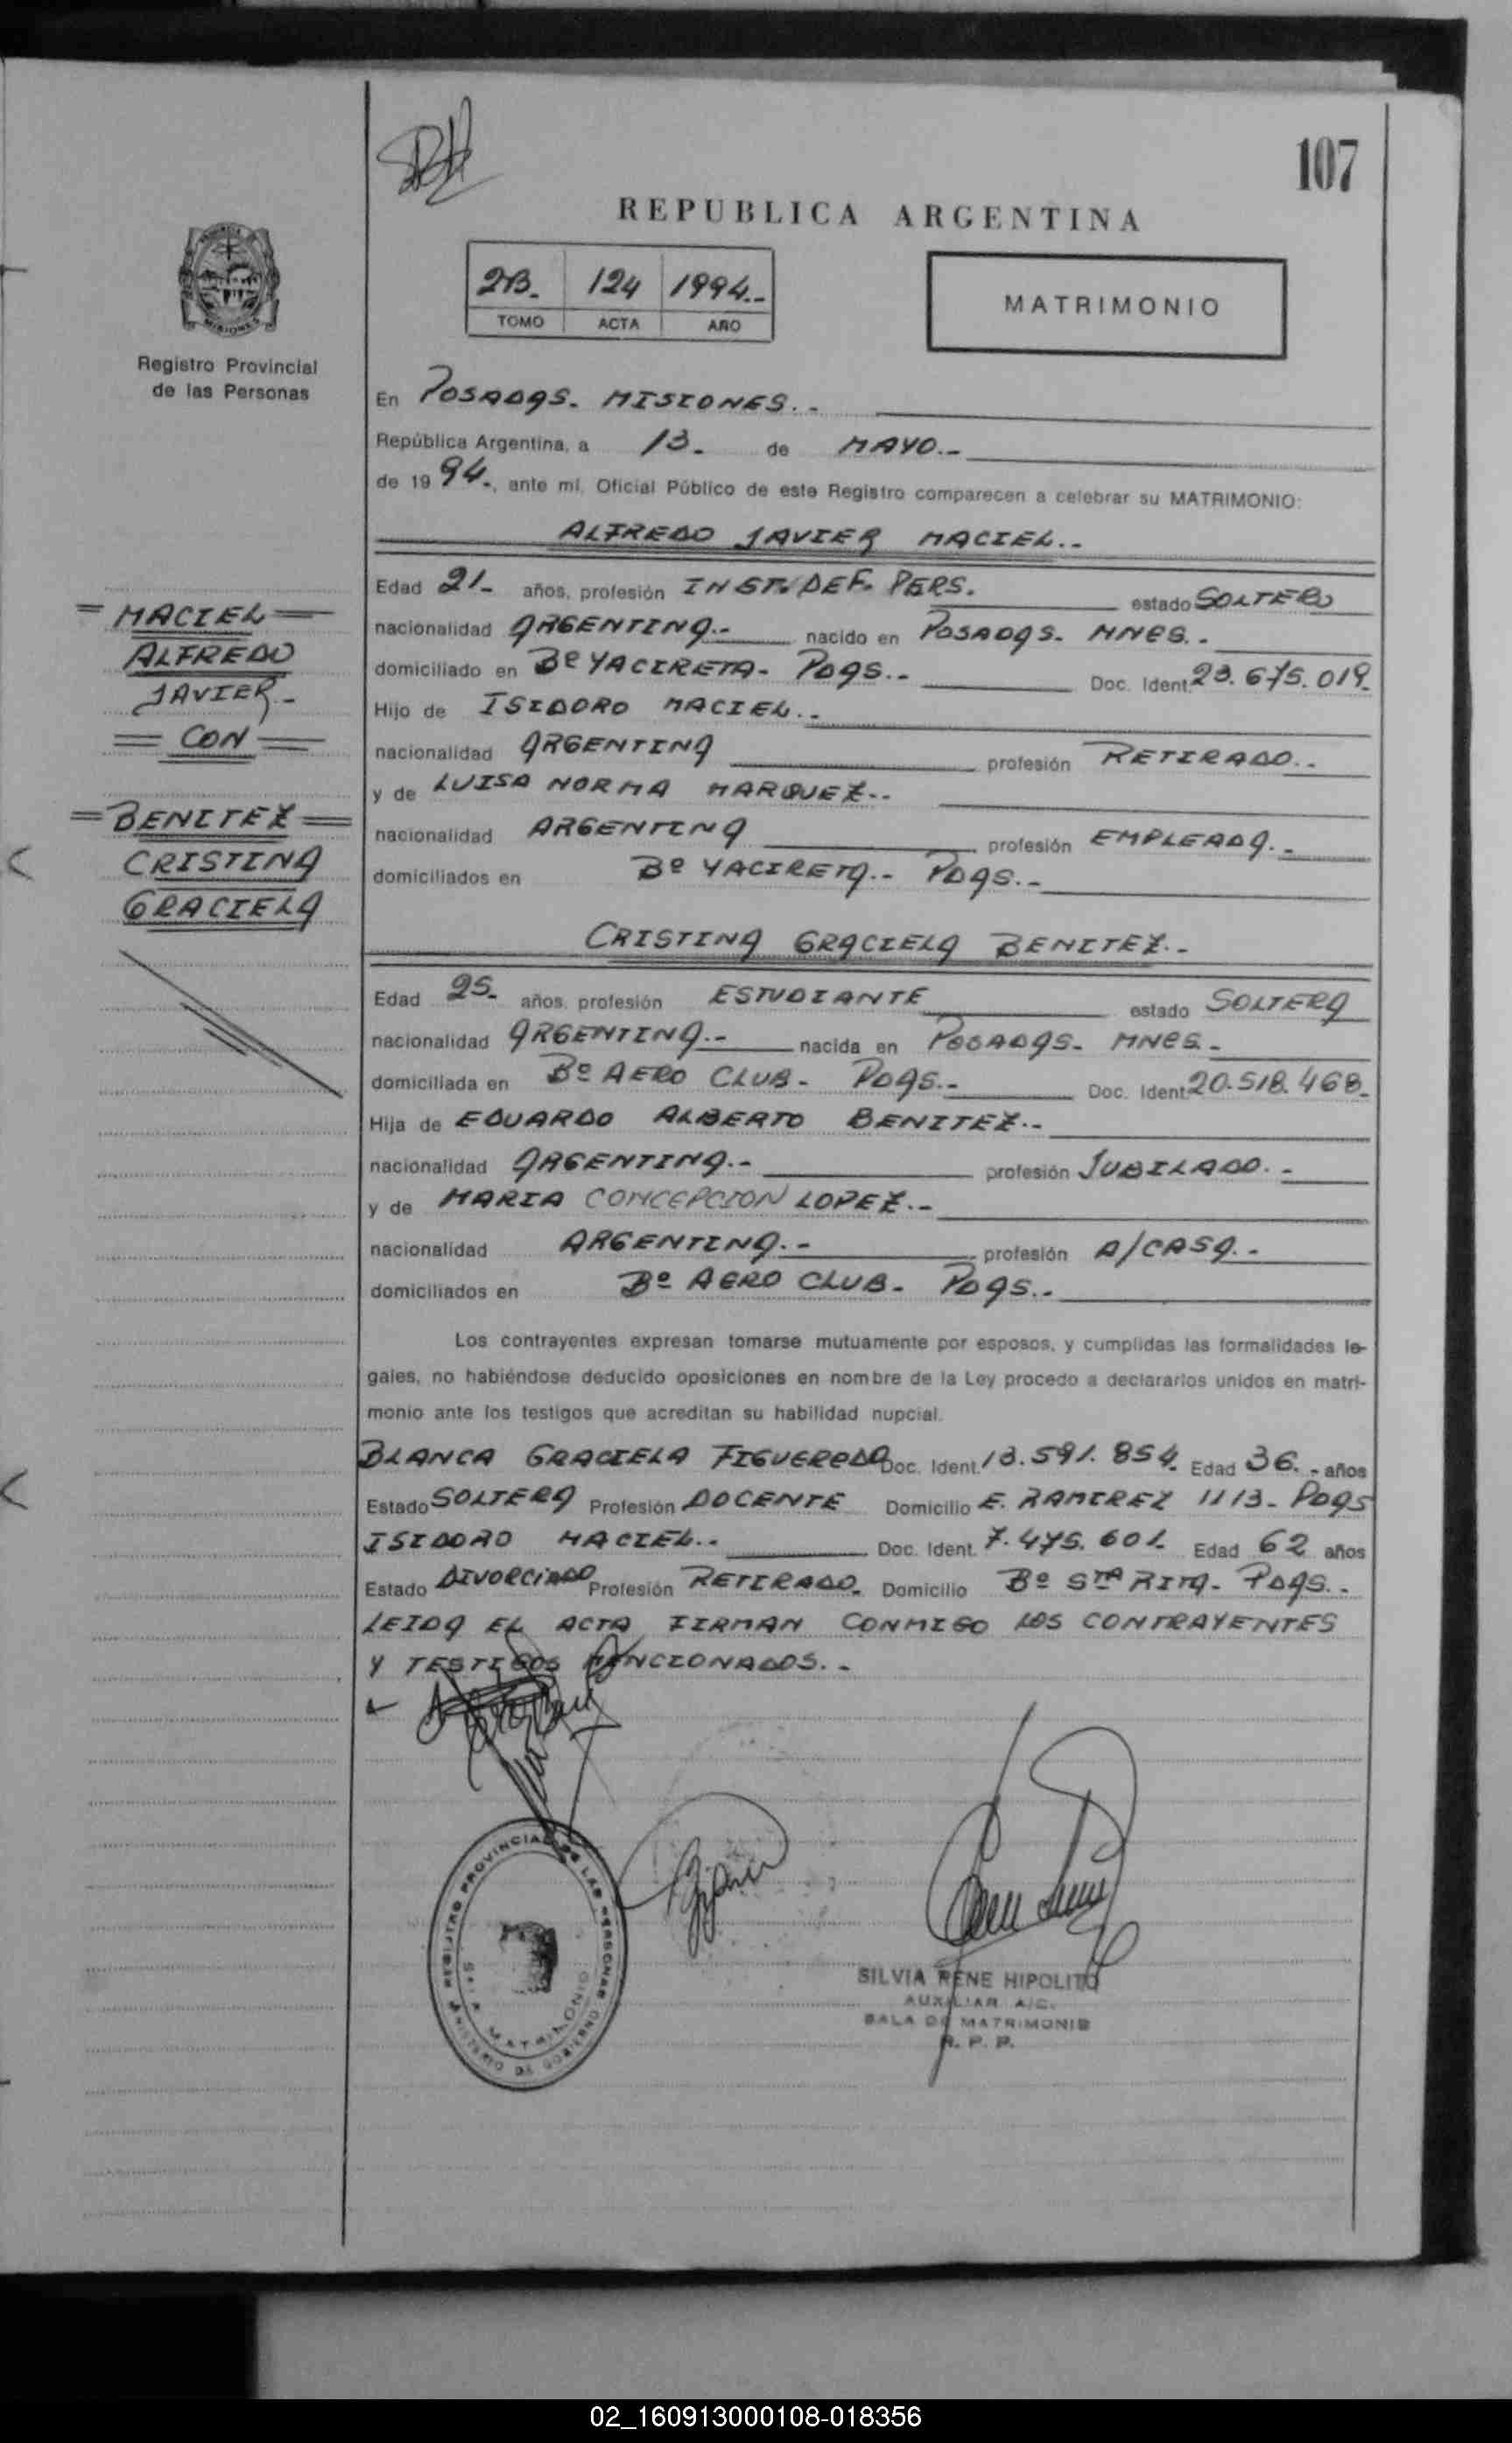 107
REPUBLICA ARGENTINA
2B. 124 1994.-
TOMO ACTA AÑO
MATRIMONIO
MISIONES
Registro Provincial
de las Personas
En POSADAS. MISIONES. -
República Argentina, a 13. de MAYO.-
de 19 94., ante mí, Oficial Público de este Registro comparecen a celebrar su MATRIMONIO:
ALFREDO JAVIER MACIEL.-
Edad 21- años, profesión INST. DEF. PERS. estado SOLTERO
nacionalidad ARGENTINA.- nacido en POSADAS. MNES. -
domiciliado en Bº YACIRETA- PDAS.- Doc. Ident. 23.675.019.
Hijo de ISIDORO MACIEL.-
nacionalidad ARGENTINA profesión RETIRADO.-
y de LUISA NORMA MARQUEZ.-
nacionalidad ARGENTINA profesión EMPLEADA.-
domiciliados en Bº YACIRETA.- PDAS.-
= MACIEL =
ALFREDO
JAVIER.-
= CON =
= BENITEZ =
CRISTINA
GRACIELA
CRISTINA GRACIELA BENITEZ.-
Edad 25- años, profesión ESTUDIANTE estado SOLTERA
nacionalidad ARGENTINA.- nacida en POSADAS- MNES.-
domiciliada en Bº AERO CLUB- PDAS.- Doc. Ident. 20.518.468.
Hija de EDUARDO ALBERTO BENITEZ.-
nacionalidad ARGENTINA.- profesión JUBILADO.-
y de MARIA CONCEPCION LOPEZ.-
nacionalidad ARGENTINA.- profesión A/CASA.-
domiciliados en Bº AERO CLUB- PDAS.-
Los contrayentes expresan tomarse mutuamente por esposos, y cumplidas las formalidades le-
gales, no habiéndose deducido oposiciones en nombre de la Ley procedo a declararlos unidos en matri-
monio ante los testigos que acreditan su habilidad nupcial.
BLANCA GRACIELA FIGUEREDO Doc. Ident. 13.591.854. Edad 36.- años
Estado SOLTERA Profesión DOCENTE Domicilio E. RAMIREZ 1113- PDAS
ISIDORO MACIEL.- Doc. Ident. 7.475.601. Edad 62 años
Estado DIVORCIADO Profesión RETIRADO. Domicilio Bº STA RITA- PDAS.-
LEIDA EL ACTA FIRMAN CONMIGO LOS CONTRAYENTES
Y TESTIGOS MENCIONADOS.-
REGISTRO PROVINCIAL DE LAS PERSONAS
MINISTERIO DE GOBIERNO
MATRIMONIO
SILVIA RENE HIPOLITO
AUXILIAR A/C.
SALA DE MATRIMONIO
R. P. P.
02_160913000108-018356